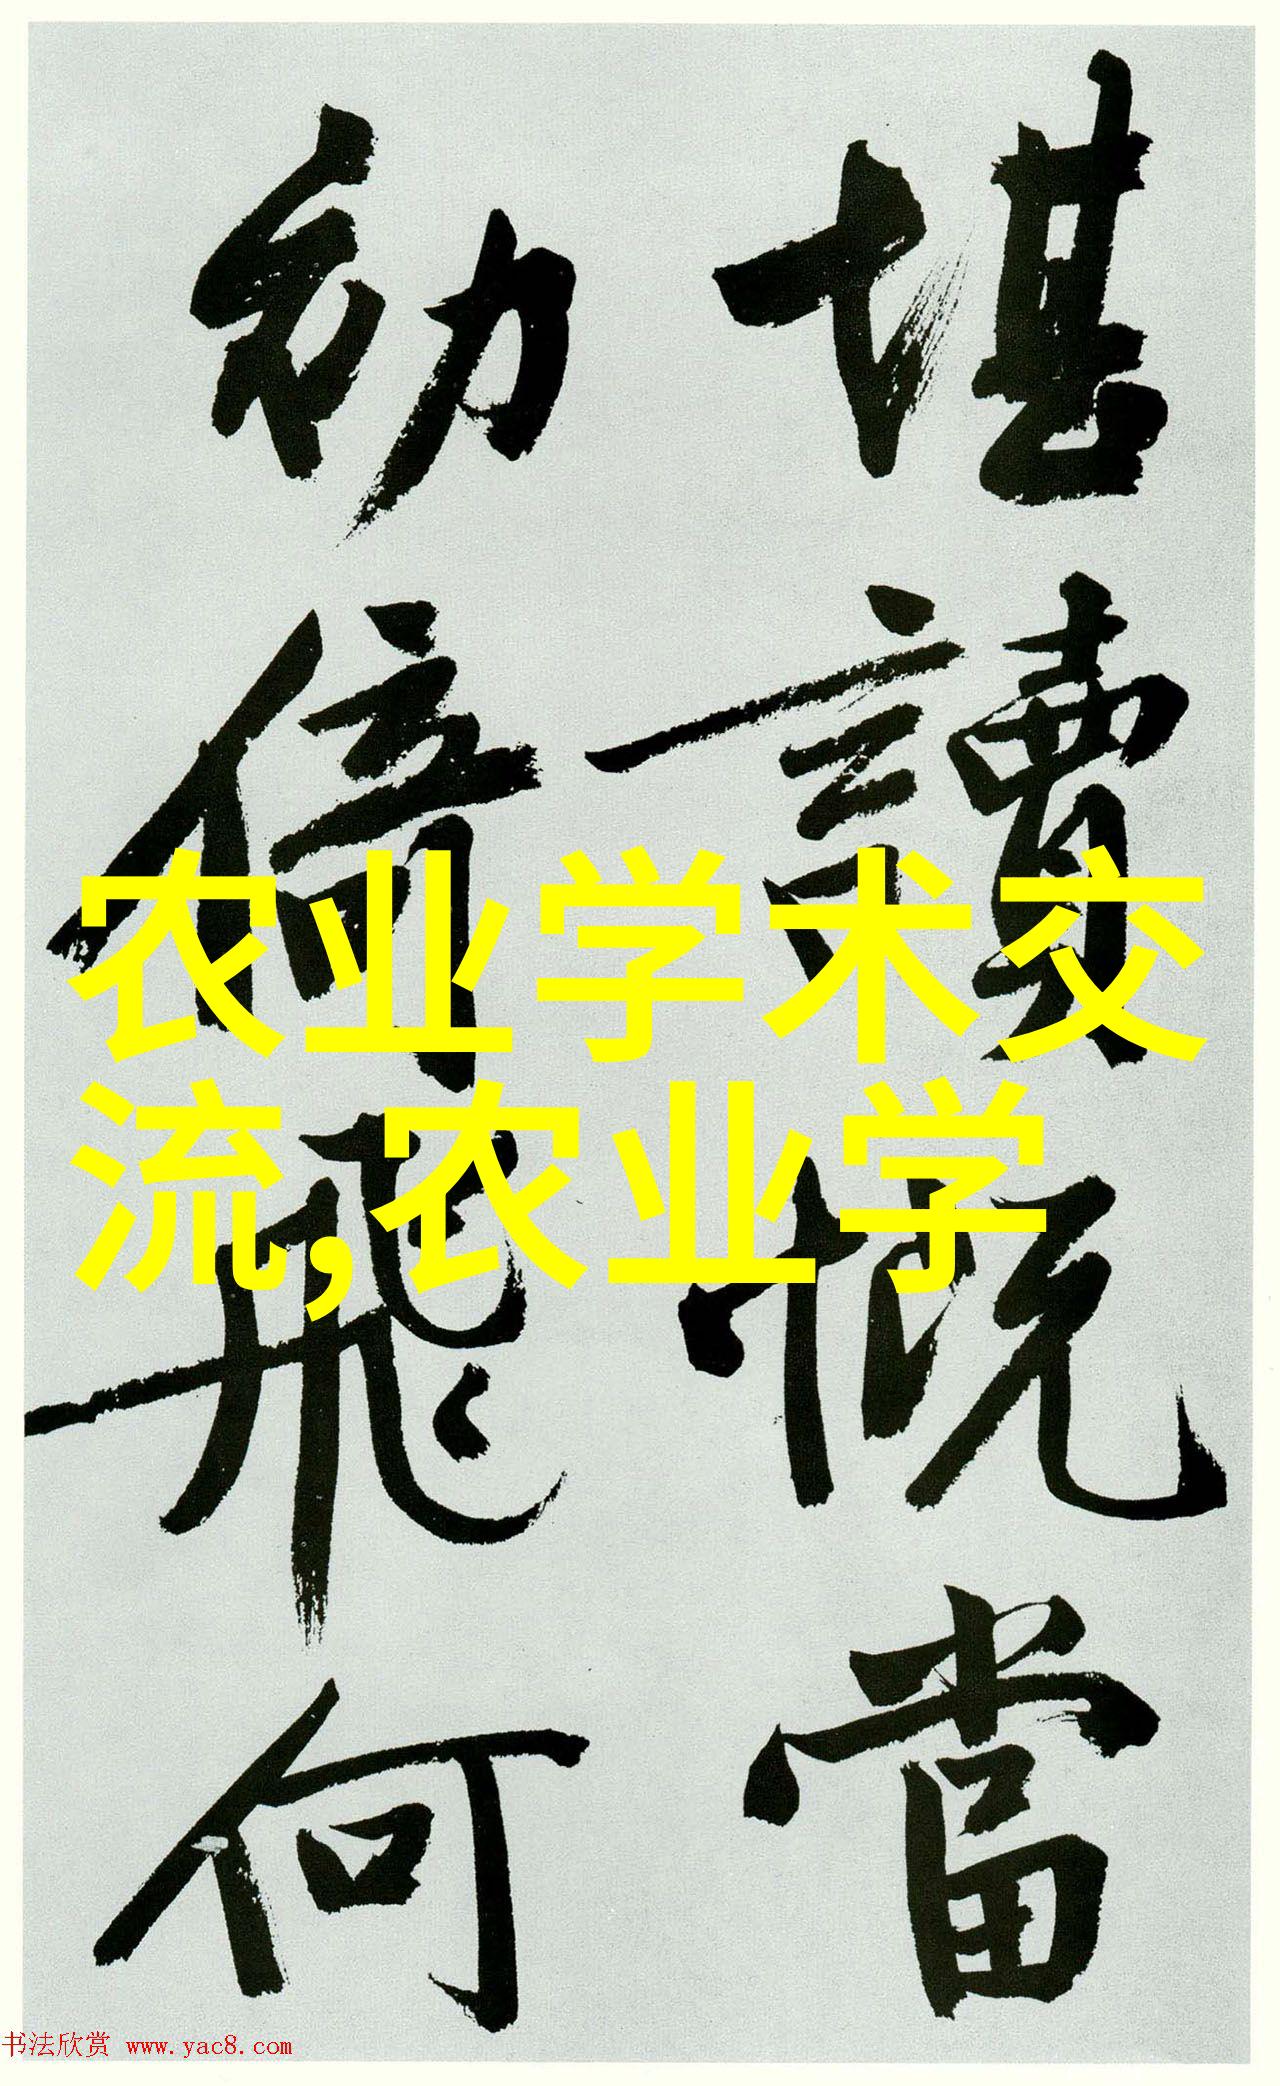 堪讀慨當
幼倚飛何
农业学术交
流,农业学
书法欣赏 www.yac8.com